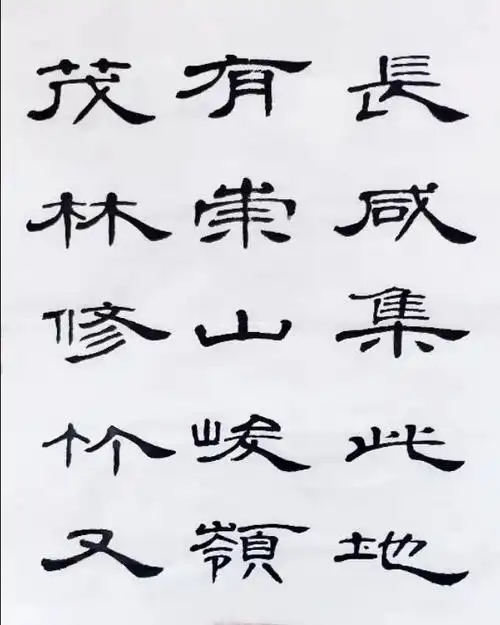 長咸集此地
有崇山峻嶺
茂林修竹又